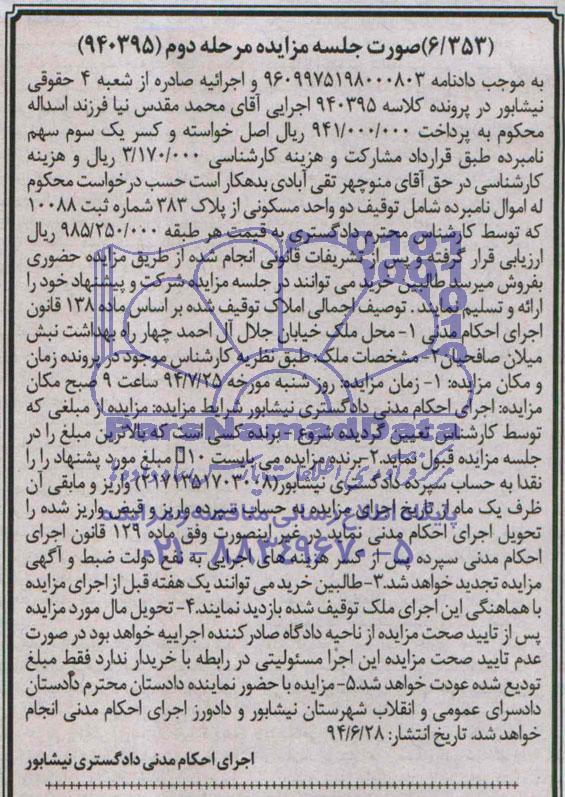 (۶/۳۵۳)صورت جلسه مزایده مرحله دوم (۹۴۰۳۹۵)
به موجب دادنامه ۹۶۰۹۹۷۵۱۹۸۰۰۰۸۰۳ و اجرائیه صادره از شعبه ۴ حقوقی
نیشابور در پرونده کلاسه ۹۴۰۳۹۵ اجرایی آقای محمد مقدس نیا فرزند اسداله
محکوم به پرداخت ۹۴۱/۰۰۰/۰۰۰ ریال اصل خواسته و کسر یک سوم سهم
نامبرده طبق قرارداد مشارکت و هزینه کارشناسی ۳/۱۷۰/۰۰۰ ریال و هزینه
کارشناسی در حق آقای منوچهر تقی آبادی بدهکار است حسب درخواست محکوم
له اموال نامبرده شامل توقیف دو واحد مسکونی از پلاک ۳۸۳ شماره ثبت ۱۰۰۸۸
که توسط کارشناس محترم دادگستری به قیمت هر طبقه ۹۸۵/۲۵۰/۰۰۰ ریال
ارزیابی قرار گرفته و پس از تشریفات قانونی انجام شده از طریق مزایده حضوری
بفروش میرسد طالبین خرید می توانند در جلسه مزایده شرکت و پیشنهاد خود را
ارائه و تسلیم نمایند. توصیف اجمالی املاک توقیف شده بر اساس ماده ۱۳۸ قانون
اجرای احکام مدنی ۱- محل ملک خیابان جلال آل احمد چهار راه بهداشت نبش
میلان صافحیان ۲- مشخصات ملک: طبق نظریه کارشناس موجود در پرونده زمان
و مکان مزایده: ۱- زمان مزایده: روز شنبه مورخه ۹۴/۷/۲۵ ساعت ۹ صبح مکان
مزایده: اجرای احکام مدنی دادگستری نیشابور شرایط مزایده: مزایده از مبلغی که
توسط کارشناس تعیین گردیده شروع - برنده کسی است که بالاترین مبلغ را در
جلسه مزایده قبول نماید.۲-برنده مزایده می بایست ۱۰ مبلغ مورد پشنهاد را را
نقدا به حساب سپرده دادگستری نیشابور(۲۱۷۱۳۵۱۷۰۳۰۰۸) واریز و مابقی آن
ظرف یک ماه از تاریخ اجرای مزایده به حساب سپرده واریز و قبض واریز شده را
تحویل اجرای احکام مدنی نماید در غیر اینصورت وفق ماده ۱۲۹ قانون اجرای
احکام مدنی سپرده پس از کسر هزینه های اجرایی به نفع دولت ضبط و آگهی
مزایده تجدید خواهد شد.۳-طالبین خرید می توانند یک هفته قبل از اجرای مزایده
با هماهنگی این اجرای ملک توقیف شده بازدید نمایند.۴- تحویل مال مورد مزایده
پس از تایید صحت مزایده از ناحیه دادگاه صادر کننده اجراییه خواهد بود در صورت
عدم تایید صحت مزایده این اجرا مسئولیتی در رابطه با خریدار ندارد فقط مبلغ
تودیع شده عودت خواهد شد.۵-مزایده با حضور نماینده دادستان محترم دادستان
دادسرای عمومی و انقلاب شهرستان نیشابور و دادورز اجرای احکام مدنی انجام
خواهد شد. تاریخ انتشار: ۹۴/۶/۲۸
اجرای احکام مدنی دادگستری نیشابور
ParsNamadData
پایگاه اطلاع رسانی مناقصه و مزایده
۰۲۱-۸۸۳۴۹۶۷۰-۵